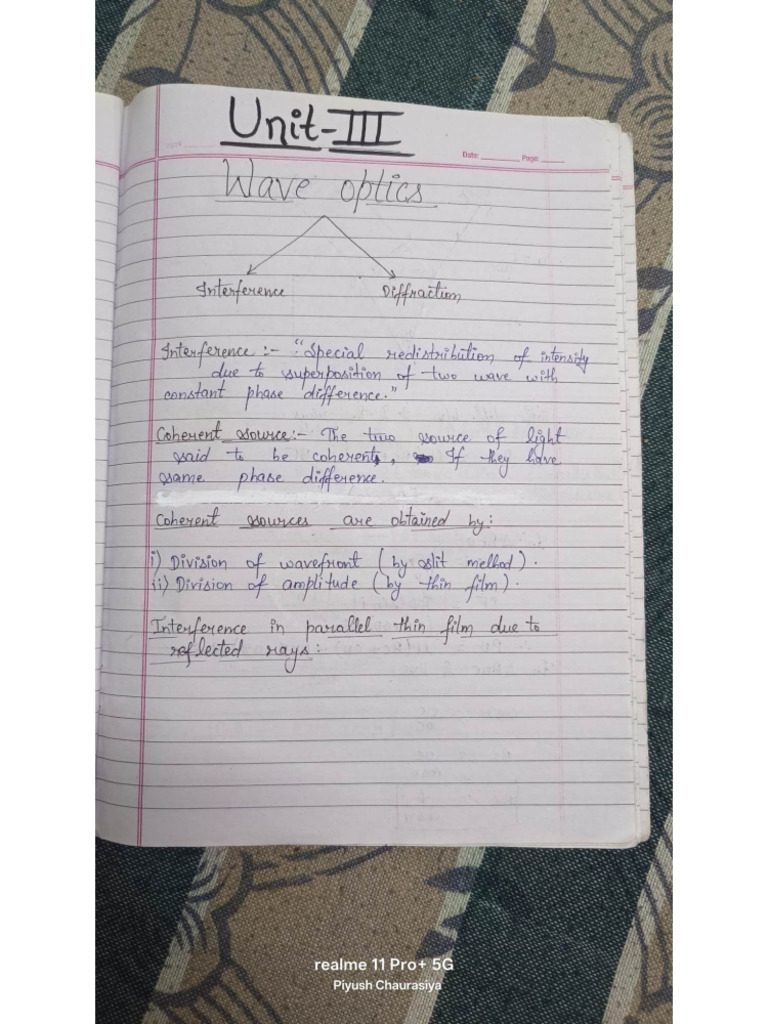 Unit-III
Date: Page:
Wave optics
Interference Diffraction
Interference :- "Special redistribution of intensity
due to superposition of two wave with
constant phase difference."
Coherent source:- The two source of light
said to be coherent, If they have
same phase difference.
Coherent sources are obtained by:
i) Division of wavefront (by slit method).
ii) Division of amplitude (by thin film).
Interference in parallel thin film due to
reflected rays:
realme 11 Pro+ 5G
Piyush Chaurasiya